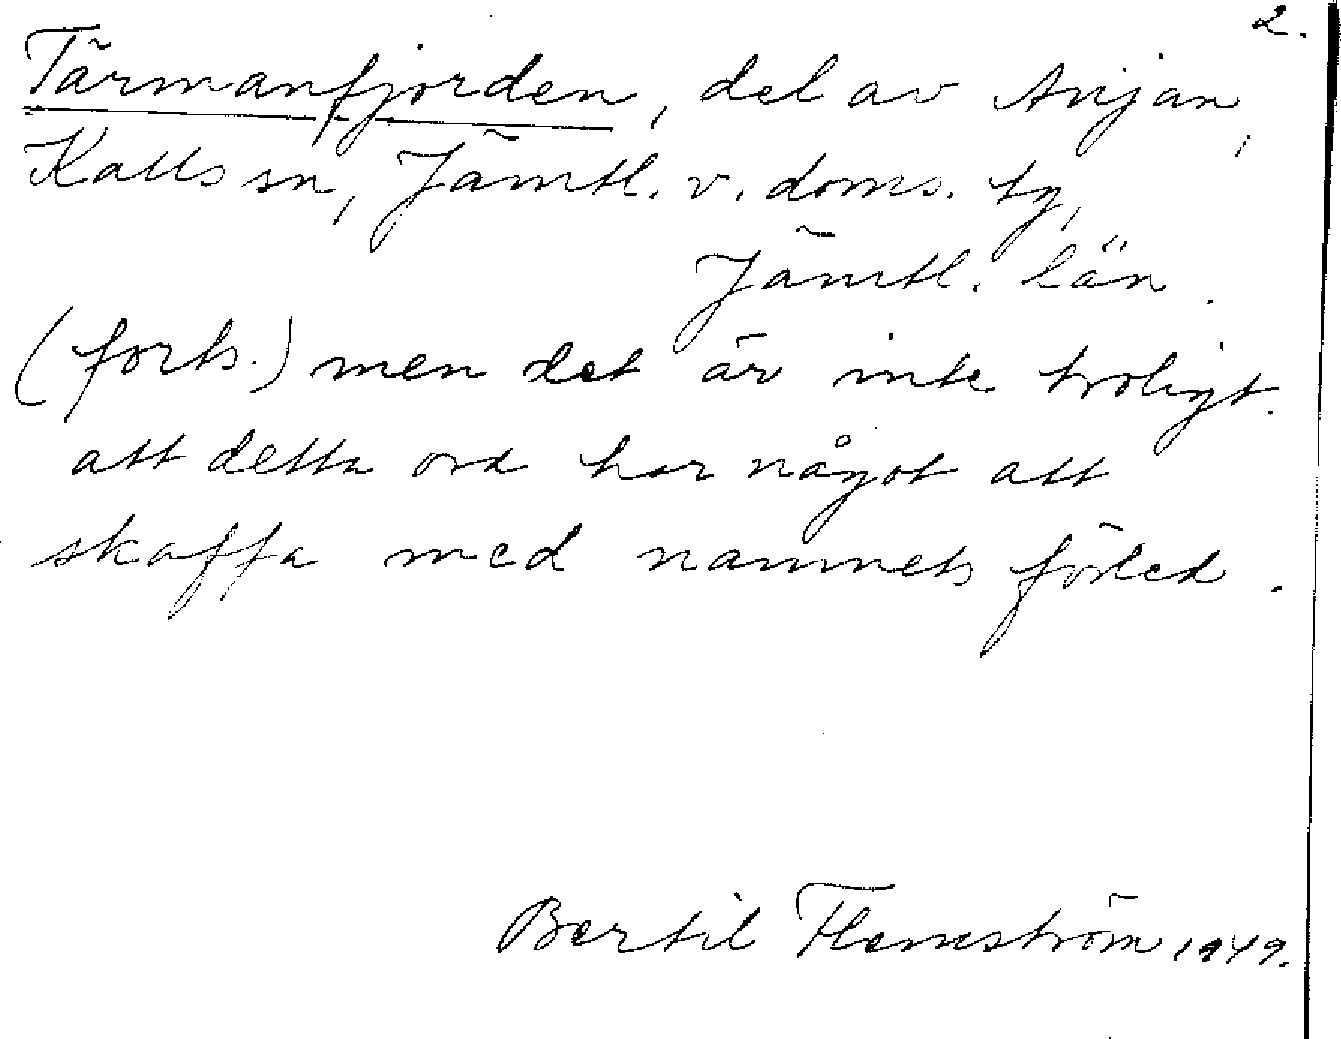 2.
Tärmanfjorden, del av Anjan,
Kalls sn, Jämtl. v. doms. tg,
Jämtl. län.
(forts.) men det är inte troligt
att detta ord har något att
skaffa med namnets förled.
Bertil Flemström 1949.